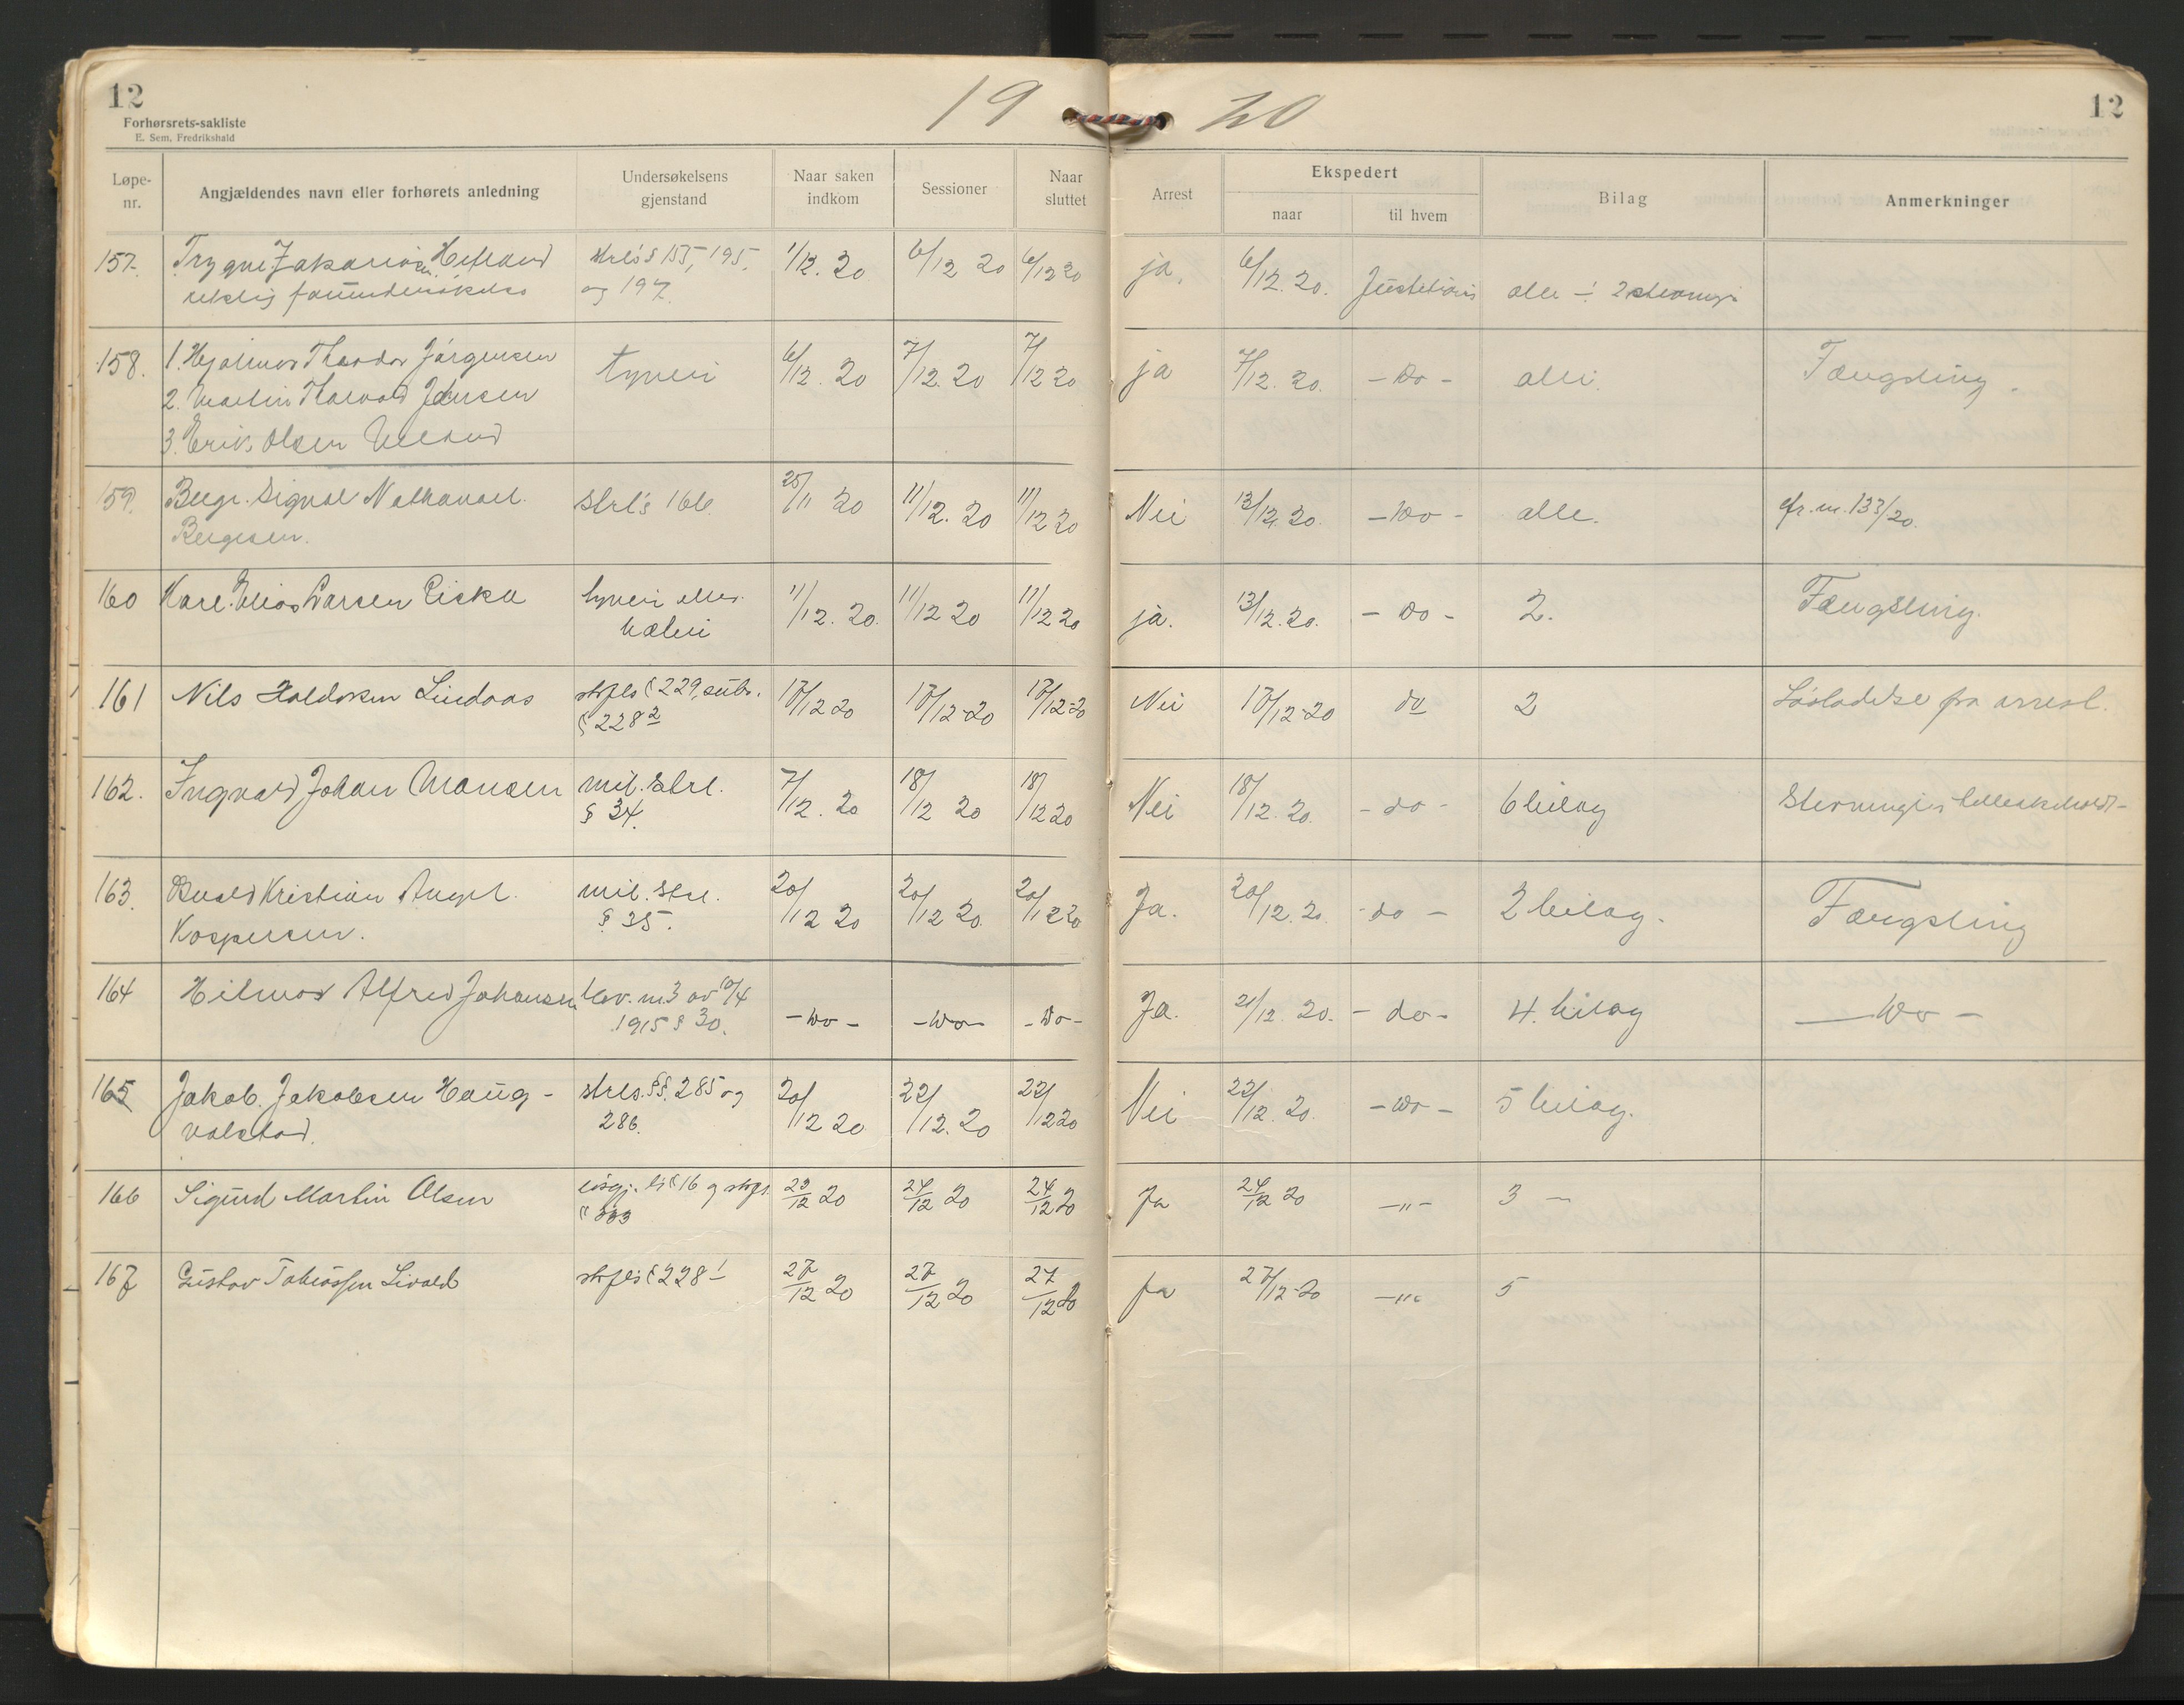 12
Forhørsrets-sakliste
E. Sem, Fredrikshald
19 20
12
Løpe-nr. Angjældendes navn eller forhørets anledning Undersøkelsens gjenstand Naar saken indkom Sessioner Naar sluttet Arrest Ekspedert naar til hvem Bilag Anmerkninger
157. Trygve Zakarias strls § 155, 195, 1/12. 20 6/12 20 6/12 20 ja. 6/12. 20. alle ÷ 2
og 197.
158. 1. Hjalmar Theodor Jørgensen tyveri 6/12. 20 7/12. 20 7/12 20 ja 7/12. 20. - Do - alle. Fængsling.
2. Martin Thorvald Jensen
3. Erik Olsen
159. Sigval Nathanael strl's 166. 25/11 20 11/12. 20 11/12 20 Nei 13/12. 20. - Do - alle. cfr. nr. 133/20.
Bergesen.
160 Karl Elias Larsen Eiska tyveri eller 11/12. 20. 11/12 20 11/12 20 ja. 13/12. 20. - Do - 2. Fængsling.
hæleri
161 Nils Haldorsen Lindaas strfls § 229, sub. 17/12 20 17/12-20 17/12-20 Nei 17/12-20 do 2 Løslatelse fra arrest.
§ 228 2
162. Ingvald Johan Monsen mil. strl. 7/12. 20 18/12 20 18/12 20 Nei 18/12. 20. - do - 6 bilag
§ 34.
163. Osvald Kristian Angel mil. strl. 20/12 20 20/12 20. 20/12 20 Ja. 20/12. 20. - do - 2 bilag. Fængsling
Kaspersen. § 35.
164 Hilmar Alfred Johansen lov. nr. 3 av 10/4 - Do - - Do - - Do - Ja. 21/12. 20. - do - 4. bilag - Do -
1915 § 30.
165 Jakob Jakobsen Haug- strls. §§ 285 og 20/12 20 22/12. 20 22/12 20 Nei 22/12. 20. - Do - 5 bilag.
valstad. 286.
166 Sigurd Martin Olsen § 16 og strfls. 23/12 20 24/12 20 24/12 20 Ja 24/12 20 - " - 3 -
§ 333
167 Gustav Tobiassen strfls § 228 1 27/12 20 27/12 20 27/12 20 Ja 27/12-20 - " - 5